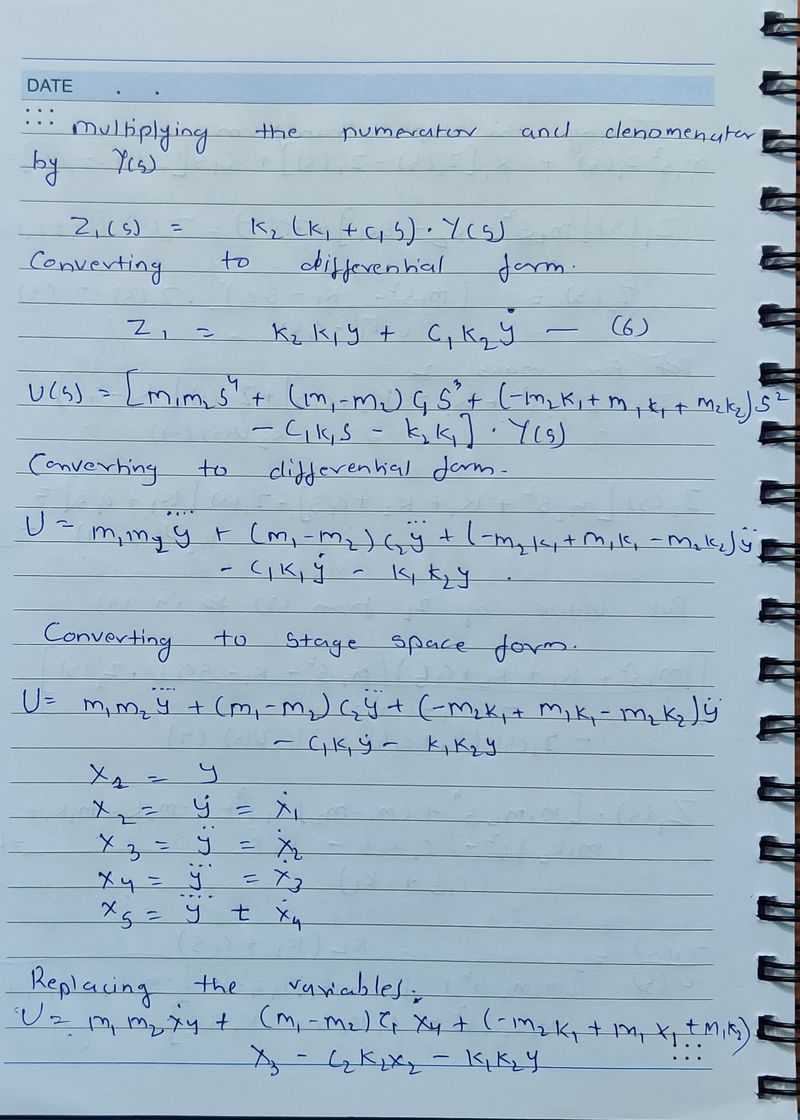 DATE . .
multiplying the numerator and denomenator
by Y(s)
Z₁(s) = K₂(K₁ + C₁S) · Y(s)
Converting to differential form.
Z₁ = K₂K₁y + C₁K₂ẏ — (6)
U(s) = [m₁m₂s⁴ + (m₁-m₂)C₁S³ + (-m₂K₁ + m₁K₁ + m₂K₂)S²
- C₁K₁S - K₂K₁] · Y(s)
Converting to differential form.
U = m₁m₂y⃜ + (m₁-m₂)C₂y⃛ + (-m₂K₁ + m₁K₁ - m₂K₂)ÿ
- C₁K₁ẏ - K₁K₂y .
Converting to stage space form.
U = m₁m₂y⃜ + (m₁-m₂)C₂y⃛ + (-m₂K₁ + m₁K₁ - m₂K₂)ÿ
- C₁K₁ẏ - K₁K₂y
X₁ = y
X₂ = ẏ = ẋ₁
X₃ = ÿ = ẋ₂
X₄ = y⃛ = ẋ₃
X₅ = y⃜ t ẋ₄
Replacing the variables.
U = m₁m₂ẋ₄ + (m₁-m₂)C₁X₄ + (-m₂K₁ + m₁X₁ + m₁K₂)
X₃ - C₂K₂X₂ - K₁K₂y